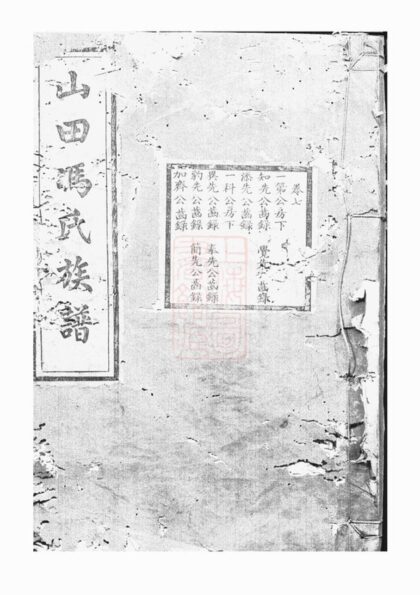 卷七
一第公房下
如先公齒錄 覺先公齒錄
先公齒錄
一科公房下
異先公齒錄 奉先公齒錄
豹先公齒錄 簡先公齒錄
加齊公齒錄
山田馮氏族譜